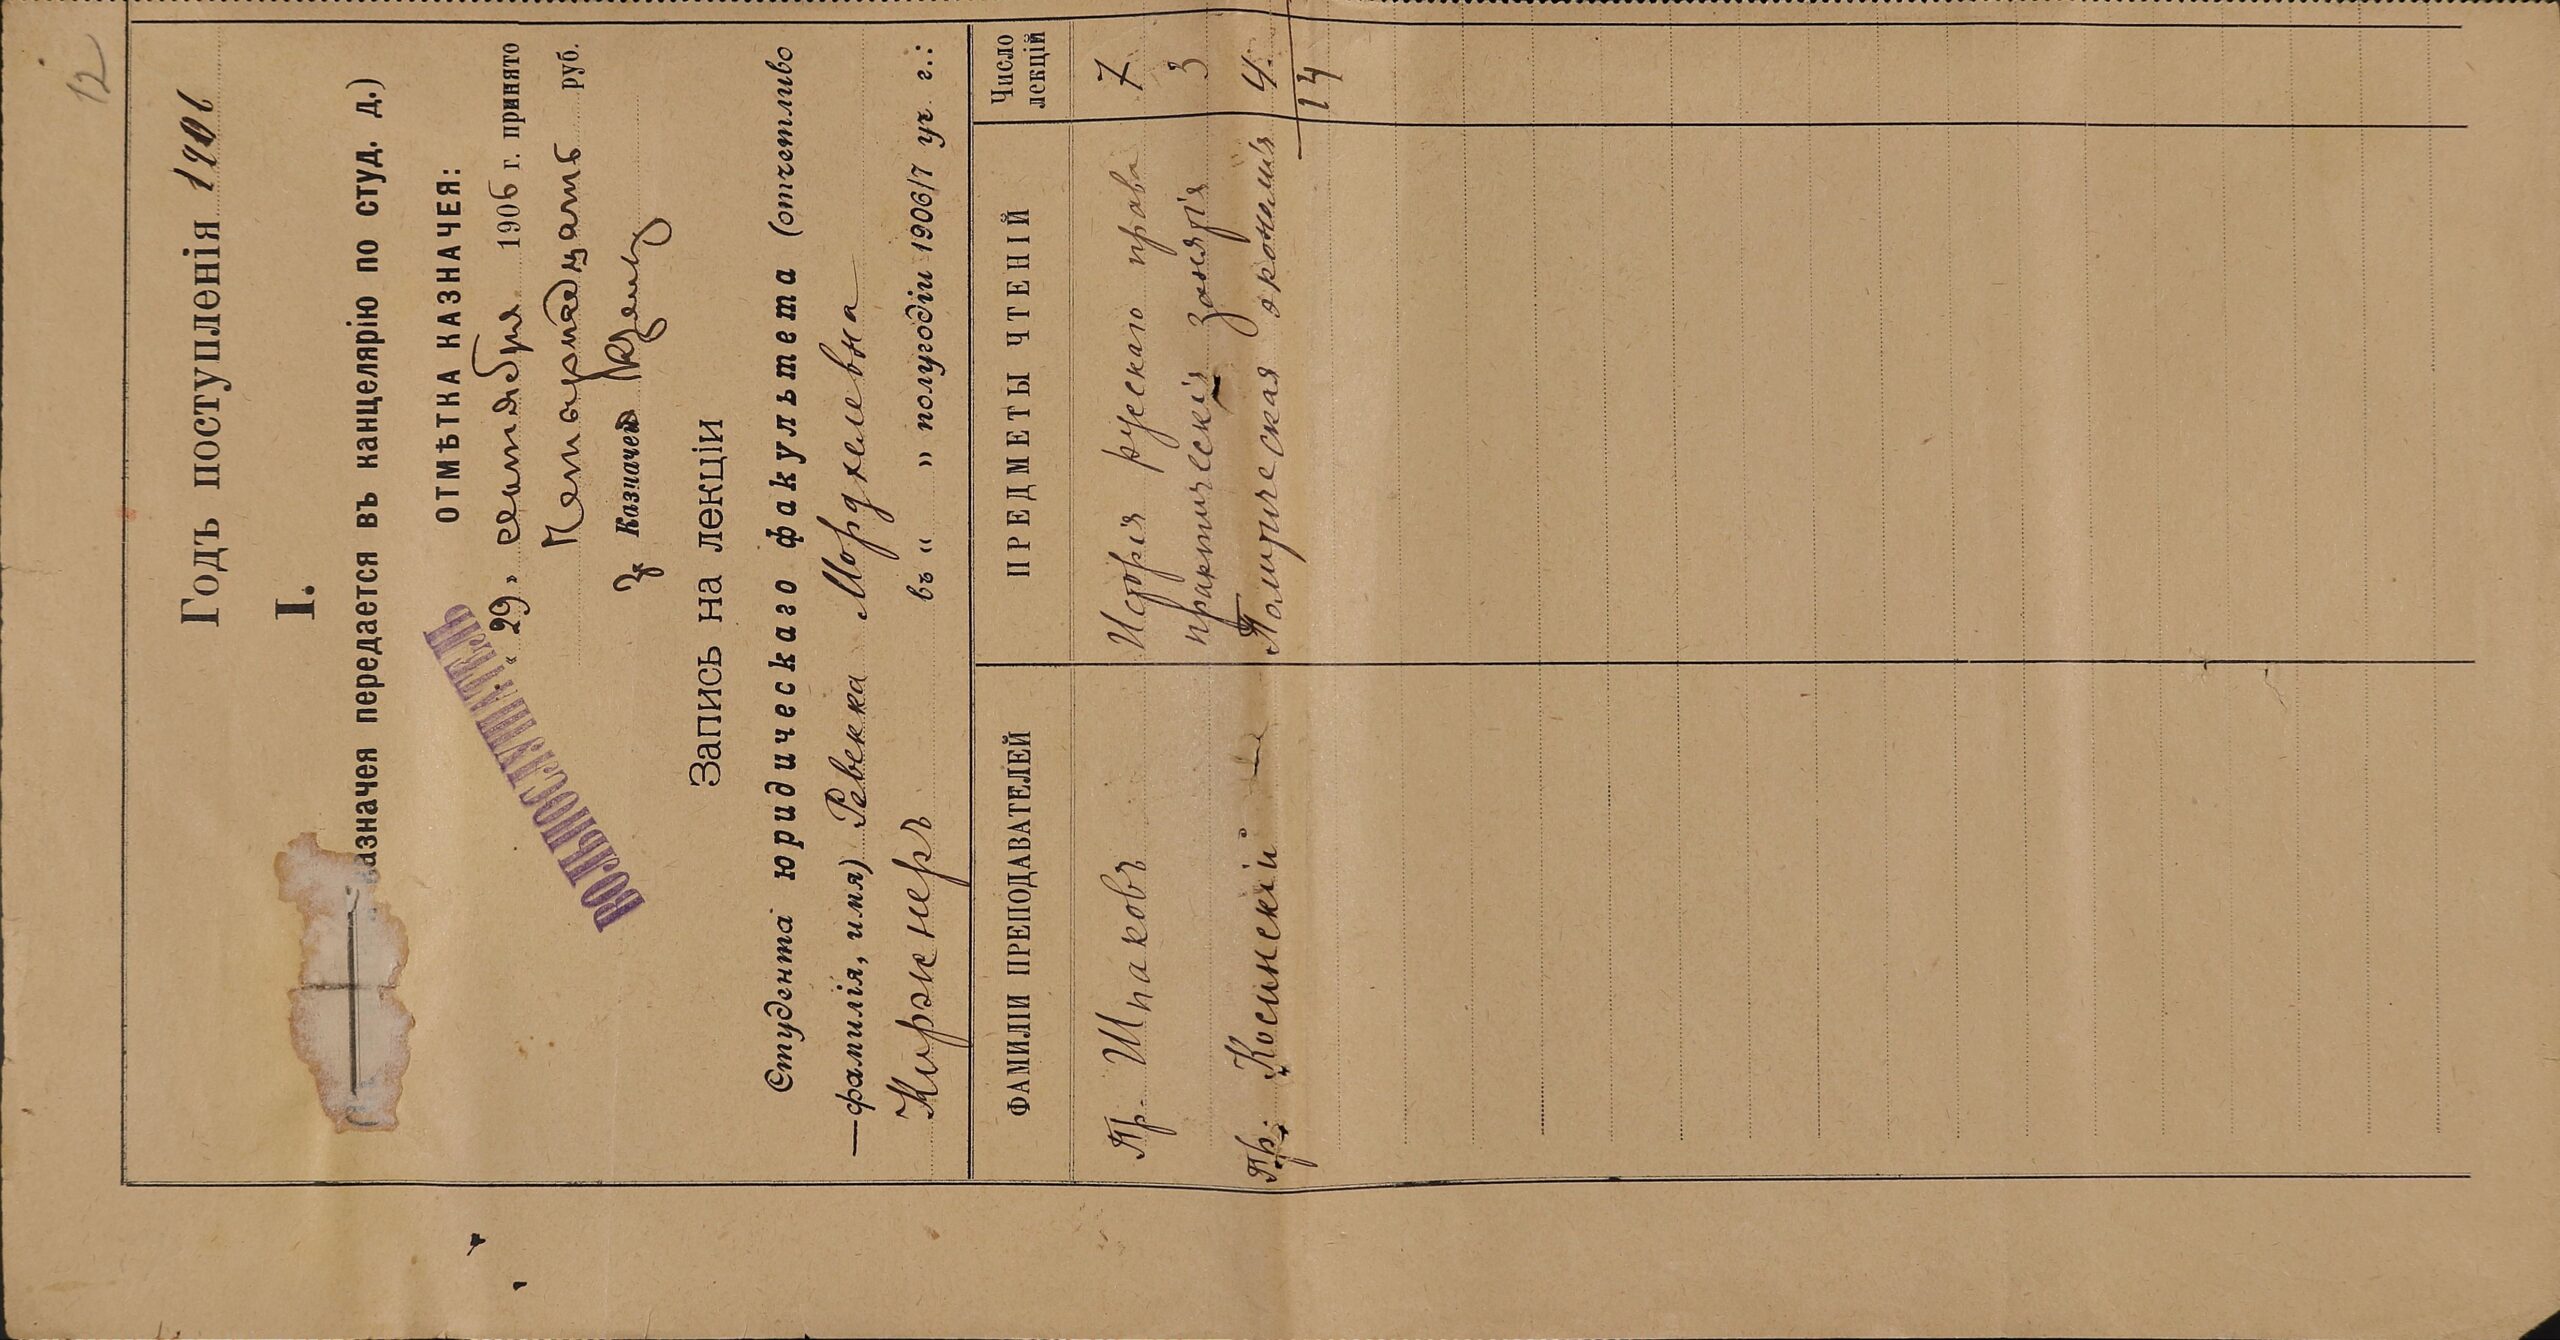 12
Годъ поступленія 1906
I.
азначея передается въ канцелярію по студ. д.)
ОТМѢТКА КАЗНАЧЕЯ:
ВОЛЬНОСЛУШАТЕЛЬ
„29„ сентября 1906 г. принято
Четырнадцать руб.
За Казначея
Запись на лекціи
Студента юридическаго факультета (отчетливо
—фамилія, имя) Ревекка Мордхелевна
Киржнеръ въ „ „ полугодіи 1906/7 уч. г.:
ФАМИЛІИ ПРЕПОДАВАТЕЛЕЙ ПРЕДМЕТЫ ЧТЕНІЙ Число лекцій
Пр. Шпаковъ Исторія русскаго права 7
практическія занятія 3
Пр. Косинскій Политическая экономія 4
14